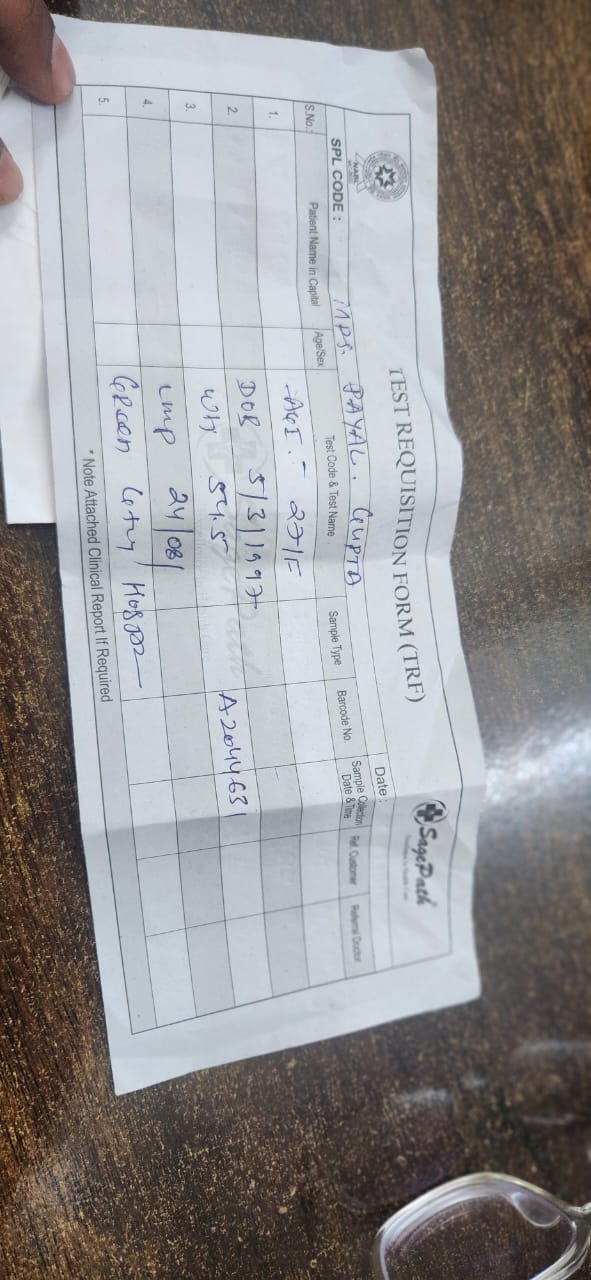 TEST REQUISITION FORM (TRF)
SagePath
Date :
SPL CODE : Mrs. PAYAL. GUPTA
S.No. Patient Name in Capital Age/Sex Test Code & Test Name Sample Type Barcode No. Sample Collection Date & Time Ref. Customer Referral Doctor
1. 27/F
2. DOB 5/3/1997
3. Wh 54.5 A2044631
4. LMP 24/08/
5. Green City
* Note Attached Clinical Report If Required